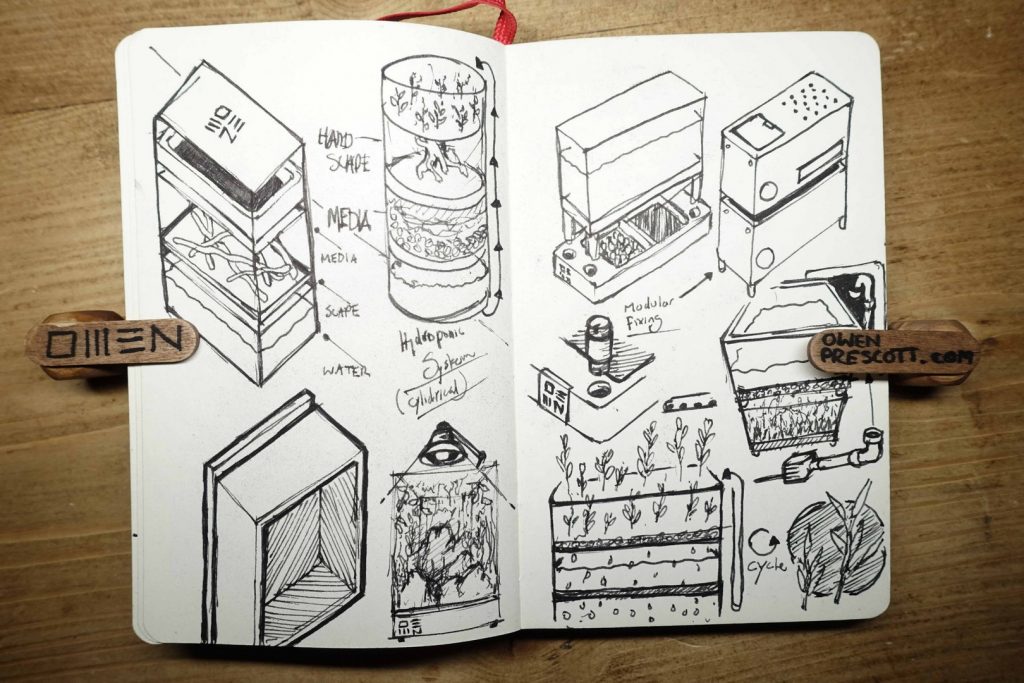 HARD
SCAPE
MEDIA
MEDIA
SCAPE
WATER
Hydroponic
System
(Cylidrical)
OWEN
Modular
Fixing
cycle
OWEN
PRESCOTT.COM